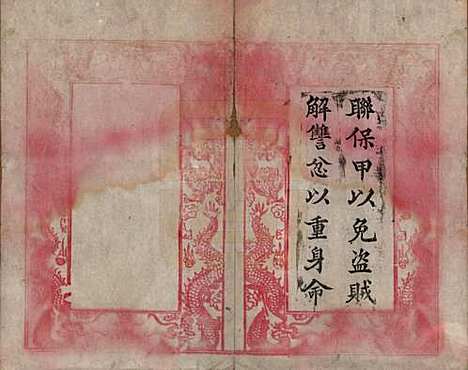 聯保甲以免盜賊
解讐忿以重身命